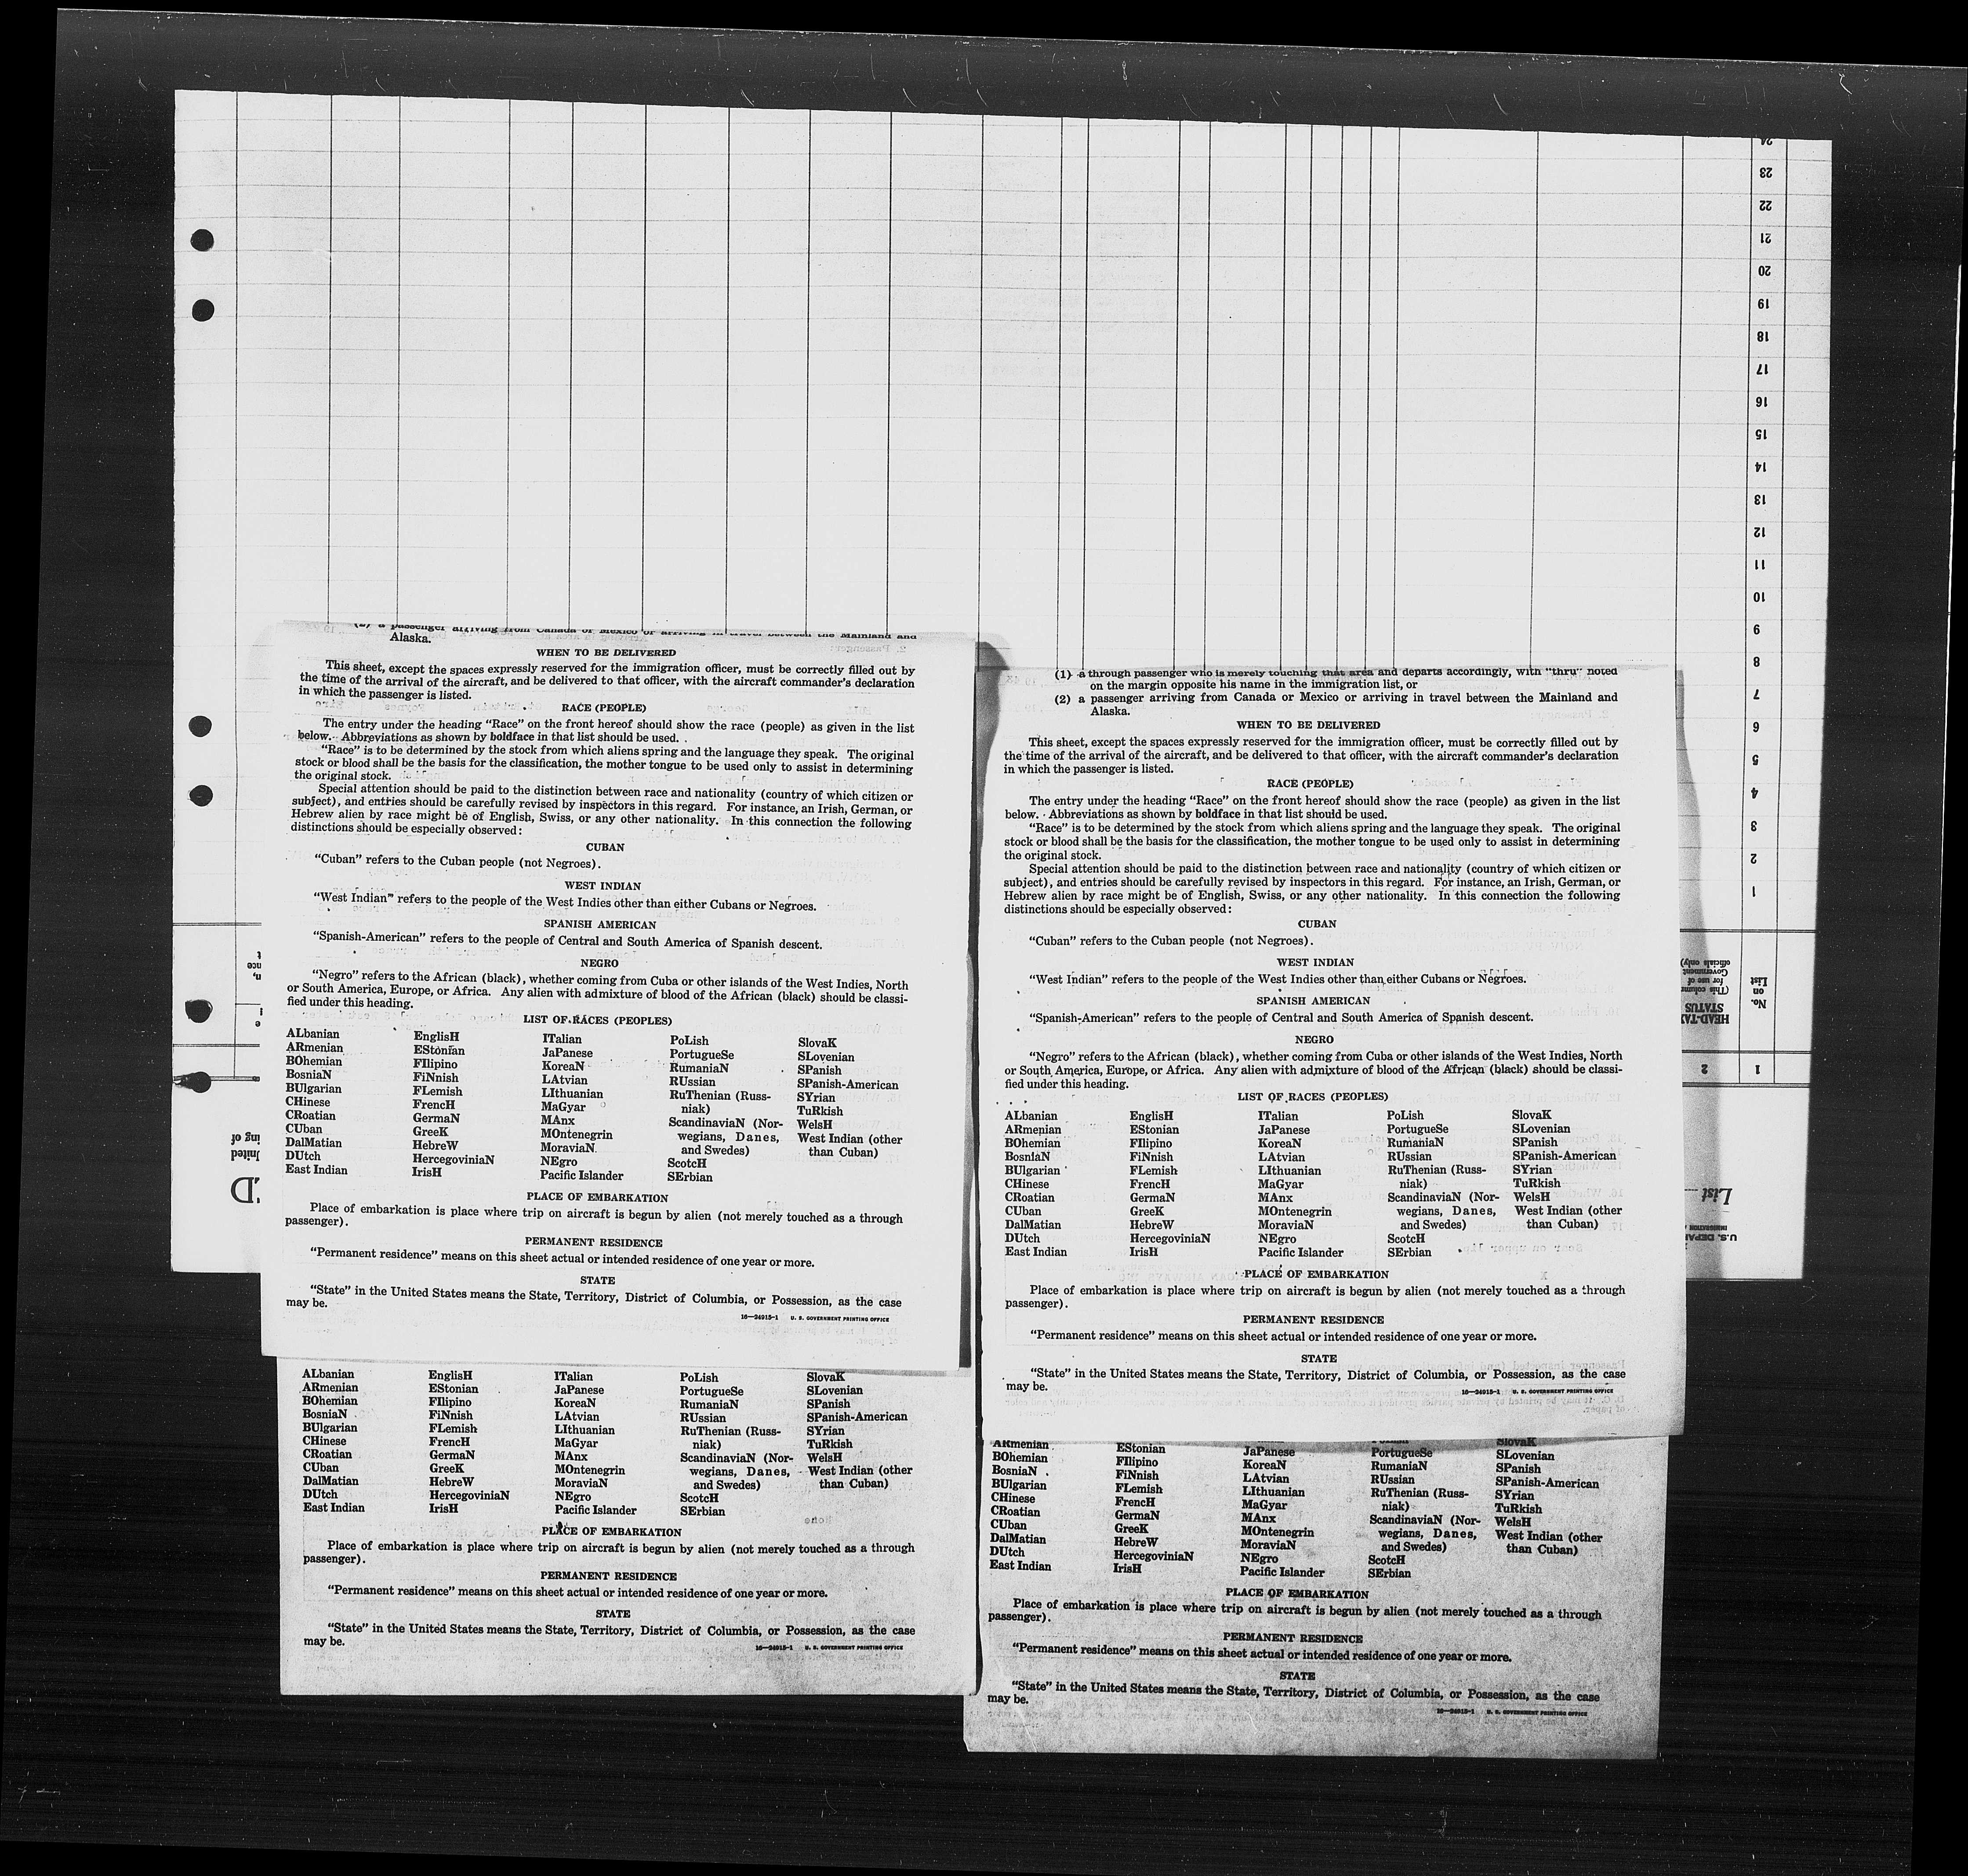 24
23
22
21
20
19
18
17
16
15
14
13
12
11
10
9
8
7
6
5
4
3
2
1
HEAD-TAX
STATUS
(This column
for use of
Government
officials only)
No.
on
List
2
1
List
U.S. DEPAR
IMMIGRATION
(2) a passenger arriving from Canada or Mexico or arriving in travel between the Mainland and
Alaska.
WHEN TO BE DELIVERED
This sheet, except the spaces expressly reserved for the immigration officer, must be correctly filled out by
the time of the arrival of the aircraft, and be delivered to that officer, with the aircraft commander's declaration
in which the passenger is listed.
RACE (PEOPLE)
The entry under the heading "Race" on the front hereof should show the race (people) as given in the list
below. Abbreviations as shown by boldface in that list should be used.
"Race" is to be determined by the stock from which aliens spring and the language they speak. The original
stock or blood shall be the basis for the classification, the mother tongue to be used only to assist in determining
the original stock.
Special attention should be paid to the distinction between race and nationality (country of which citizen or
subject), and entries should be carefully revised by inspectors in this regard. For instance, an Irish, German, or
Hebrew alien by race might be of English, Swiss, or any other nationality. In this connection the following
distinctions should be especially observed:
CUBAN
"Cuban" refers to the Cuban people (not Negroes).
WEST INDIAN
"West Indian" refers to the people of the West Indies other than either Cubans or Negroes.
SPANISH AMERICAN
"Spanish-American" refers to the people of Central and South America of Spanish descent.
NEGRO
"Negro" refers to the African (black), whether coming from Cuba or other islands of the West Indies, North
or South America, Europe, or Africa. Any alien with admixture of blood of the African (black) should be classi-
fied under this heading.
LIST OF RACES (PEOPLES)
ALbanian EnglisH ITalian PoLish SlovaK
ARmenian EStonian JaPanese PortugueSe SLovenian
BOhemian FIlipino KoreaN RumaniaN SPanish
BosniaN FiNnish LAtvian RUssian SPanish-American
BUlgarian FLemish LIthuanian RuThenian (Russ- SYrian
CHinese FrencH MaGyar niak) TuRkish
CRoatian GermaN MAnx ScandinaviaN (Nor- WelsH
CUban GreeK MOntenegrin wegians, Danes, West Indian (other
DalMatian HebreW MoraviaN and Swedes) than Cuban)
DUtch HercegoviniaN NEgro ScotcH
East Indian IrisH Pacific Islander SErbian
PLACE OF EMBARKATION
Place of embarkation is place where trip on aircraft is begun by alien (not merely touched as a through
passenger).
PERMANENT RESIDENCE
"Permanent residence" means on this sheet actual or intended residence of one year or more.
STATE
"State" in the United States means the State, Territory, District of Columbia, or Possession, as the case
may be.
16—24915-1 U. S. GOVERNMENT PRINTING OFFICE
ALbanian EnglisH ITalian PoLish SlovaK
ARmenian EStonian JaPanese PortugueSe SLovenian
BOhemian FIlipino KoreaN RumaniaN SPanish
BosniaN FiNnish LAtvian RUssian SPanish-American
BUlgarian FLemish LIthuanian RuThenian (Russ- SYrian
CHinese FrencH MaGyar niak) TuRkish
CRoatian GermaN MAnx ScandinaviaN (Nor- WelsH
CUban GreeK MOntenegrin wegians, Danes, West Indian (other
DalMatian HebreW MoraviaN and Swedes) than Cuban)
DUtch HercegoviniaN NEgro ScotcH
East Indian IrisH Pacific Islander SErbian
PLACE OF EMBARKATION
Place of embarkation is place where trip on aircraft is begun by alien (not merely touched as a through
passenger).
PERMANENT RESIDENCE
"Permanent residence" means on this sheet actual or intended residence of one year or more.
STATE
"State" in the United States means the State, Territory, District of Columbia, or Possession, as the case
may be.
16—24915-1 U. S. GOVERNMENT PRINTING OFFICE
(1) a through passenger who is merely touching that area and departs accordingly, with "thru" noted
on the margin opposite his name in the immigration list, or
(2) a passenger arriving from Canada or Mexico or arriving in travel between the Mainland and
Alaska.
WHEN TO BE DELIVERED
This sheet, except the spaces expressly reserved for the immigration officer, must be correctly filled out by
the time of the arrival of the aircraft, and be delivered to that officer, with the aircraft commander's declaration
in which the passenger is listed.
RACE (PEOPLE)
The entry under the heading "Race" on the front hereof should show the race (people) as given in the list
below. Abbreviations as shown by boldface in that list should be used.
"Race" is to be determined by the stock from which aliens spring and the language they speak. The original
stock or blood shall be the basis for the classification, the mother tongue to be used only to assist in determining
the original stock.
Special attention should be paid to the distinction between race and nationality (country of which citizen or
subject), and entries should be carefully revised by inspectors in this regard. For instance, an Irish, German, or
Hebrew alien by race might be of English, Swiss, or any other nationality. In this connection the following
distinctions should be especially observed:
CUBAN
"Cuban" refers to the Cuban people (not Negroes).
WEST INDIAN
"West Indian" refers to the people of the West Indies other than either Cubans or Negroes.
SPANISH AMERICAN
"Spanish-American" refers to the people of Central and South America of Spanish descent.
NEGRO
"Negro" refers to the African (black), whether coming from Cuba or other islands of the West Indies, North
or South America, Europe, or Africa. Any alien with admixture of blood of the African (black) should be classi-
fied under this heading.
LIST OF RACES (PEOPLES)
ALbanian EnglisH ITalian PoLish SlovaK
ARmenian EStonian JaPanese PortugueSe SLovenian
BOhemian FIlipino KoreaN RumaniaN SPanish
BosniaN FiNnish LAtvian RUssian SPanish-American
BUlgarian FLemish LIthuanian RuThenian (Russ- SYrian
CHinese FrencH MaGyar niak) TuRkish
CRoatian GermaN MAnx ScandinaviaN (Nor- WelsH
CUban GreeK MOntenegrin wegians, Danes, West Indian (other
DalMatian HebreW MoraviaN and Swedes) than Cuban)
DUtch HercegoviniaN NEgro ScotcH
East Indian IrisH Pacific Islander SErbian
PLACE OF EMBARKATION
Place of embarkation is place where trip on aircraft is begun by alien (not merely touched as a through
passenger).
PERMANENT RESIDENCE
"Permanent residence" means on this sheet actual or intended residence of one year or more.
STATE
"State" in the United States means the State, Territory, District of Columbia, or Possession, as the case
may be.
16—24915-1 U. S. GOVERNMENT PRINTING OFFICE
ARmenian EStonian JaPanese PortugueSe SlovaK
BOhemian FIlipino KoreaN RumaniaN SLovenian
BosniaN FiNnish LAtvian RUssian SPanish
BUlgarian FLemish LIthuanian RuThenian (Russ- SPanish-American
CHinese FrencH MaGyar niak) SYrian
CRoatian GermaN MAnx ScandinaviaN (Nor- TuRkish
CUban GreeK MOntenegrin wegians, Danes, WelsH
DalMatian HebreW MoraviaN and Swedes) West Indian (other
DUtch HercegoviniaN NEgro ScotcH than Cuban)
East Indian IrisH Pacific Islander SErbian
PLACE OF EMBARKATION
Place of embarkation is place where trip on aircraft is begun by alien (not merely touched as a through
passenger).
PERMANENT RESIDENCE
"Permanent residence" means on this sheet actual or intended residence of one year or more.
STATE
"State" in the United States means the State, Territory, District of Columbia, or Possession, as the case
may be.
16—24915-1 U. S. GOVERNMENT PRINTING OFFICE